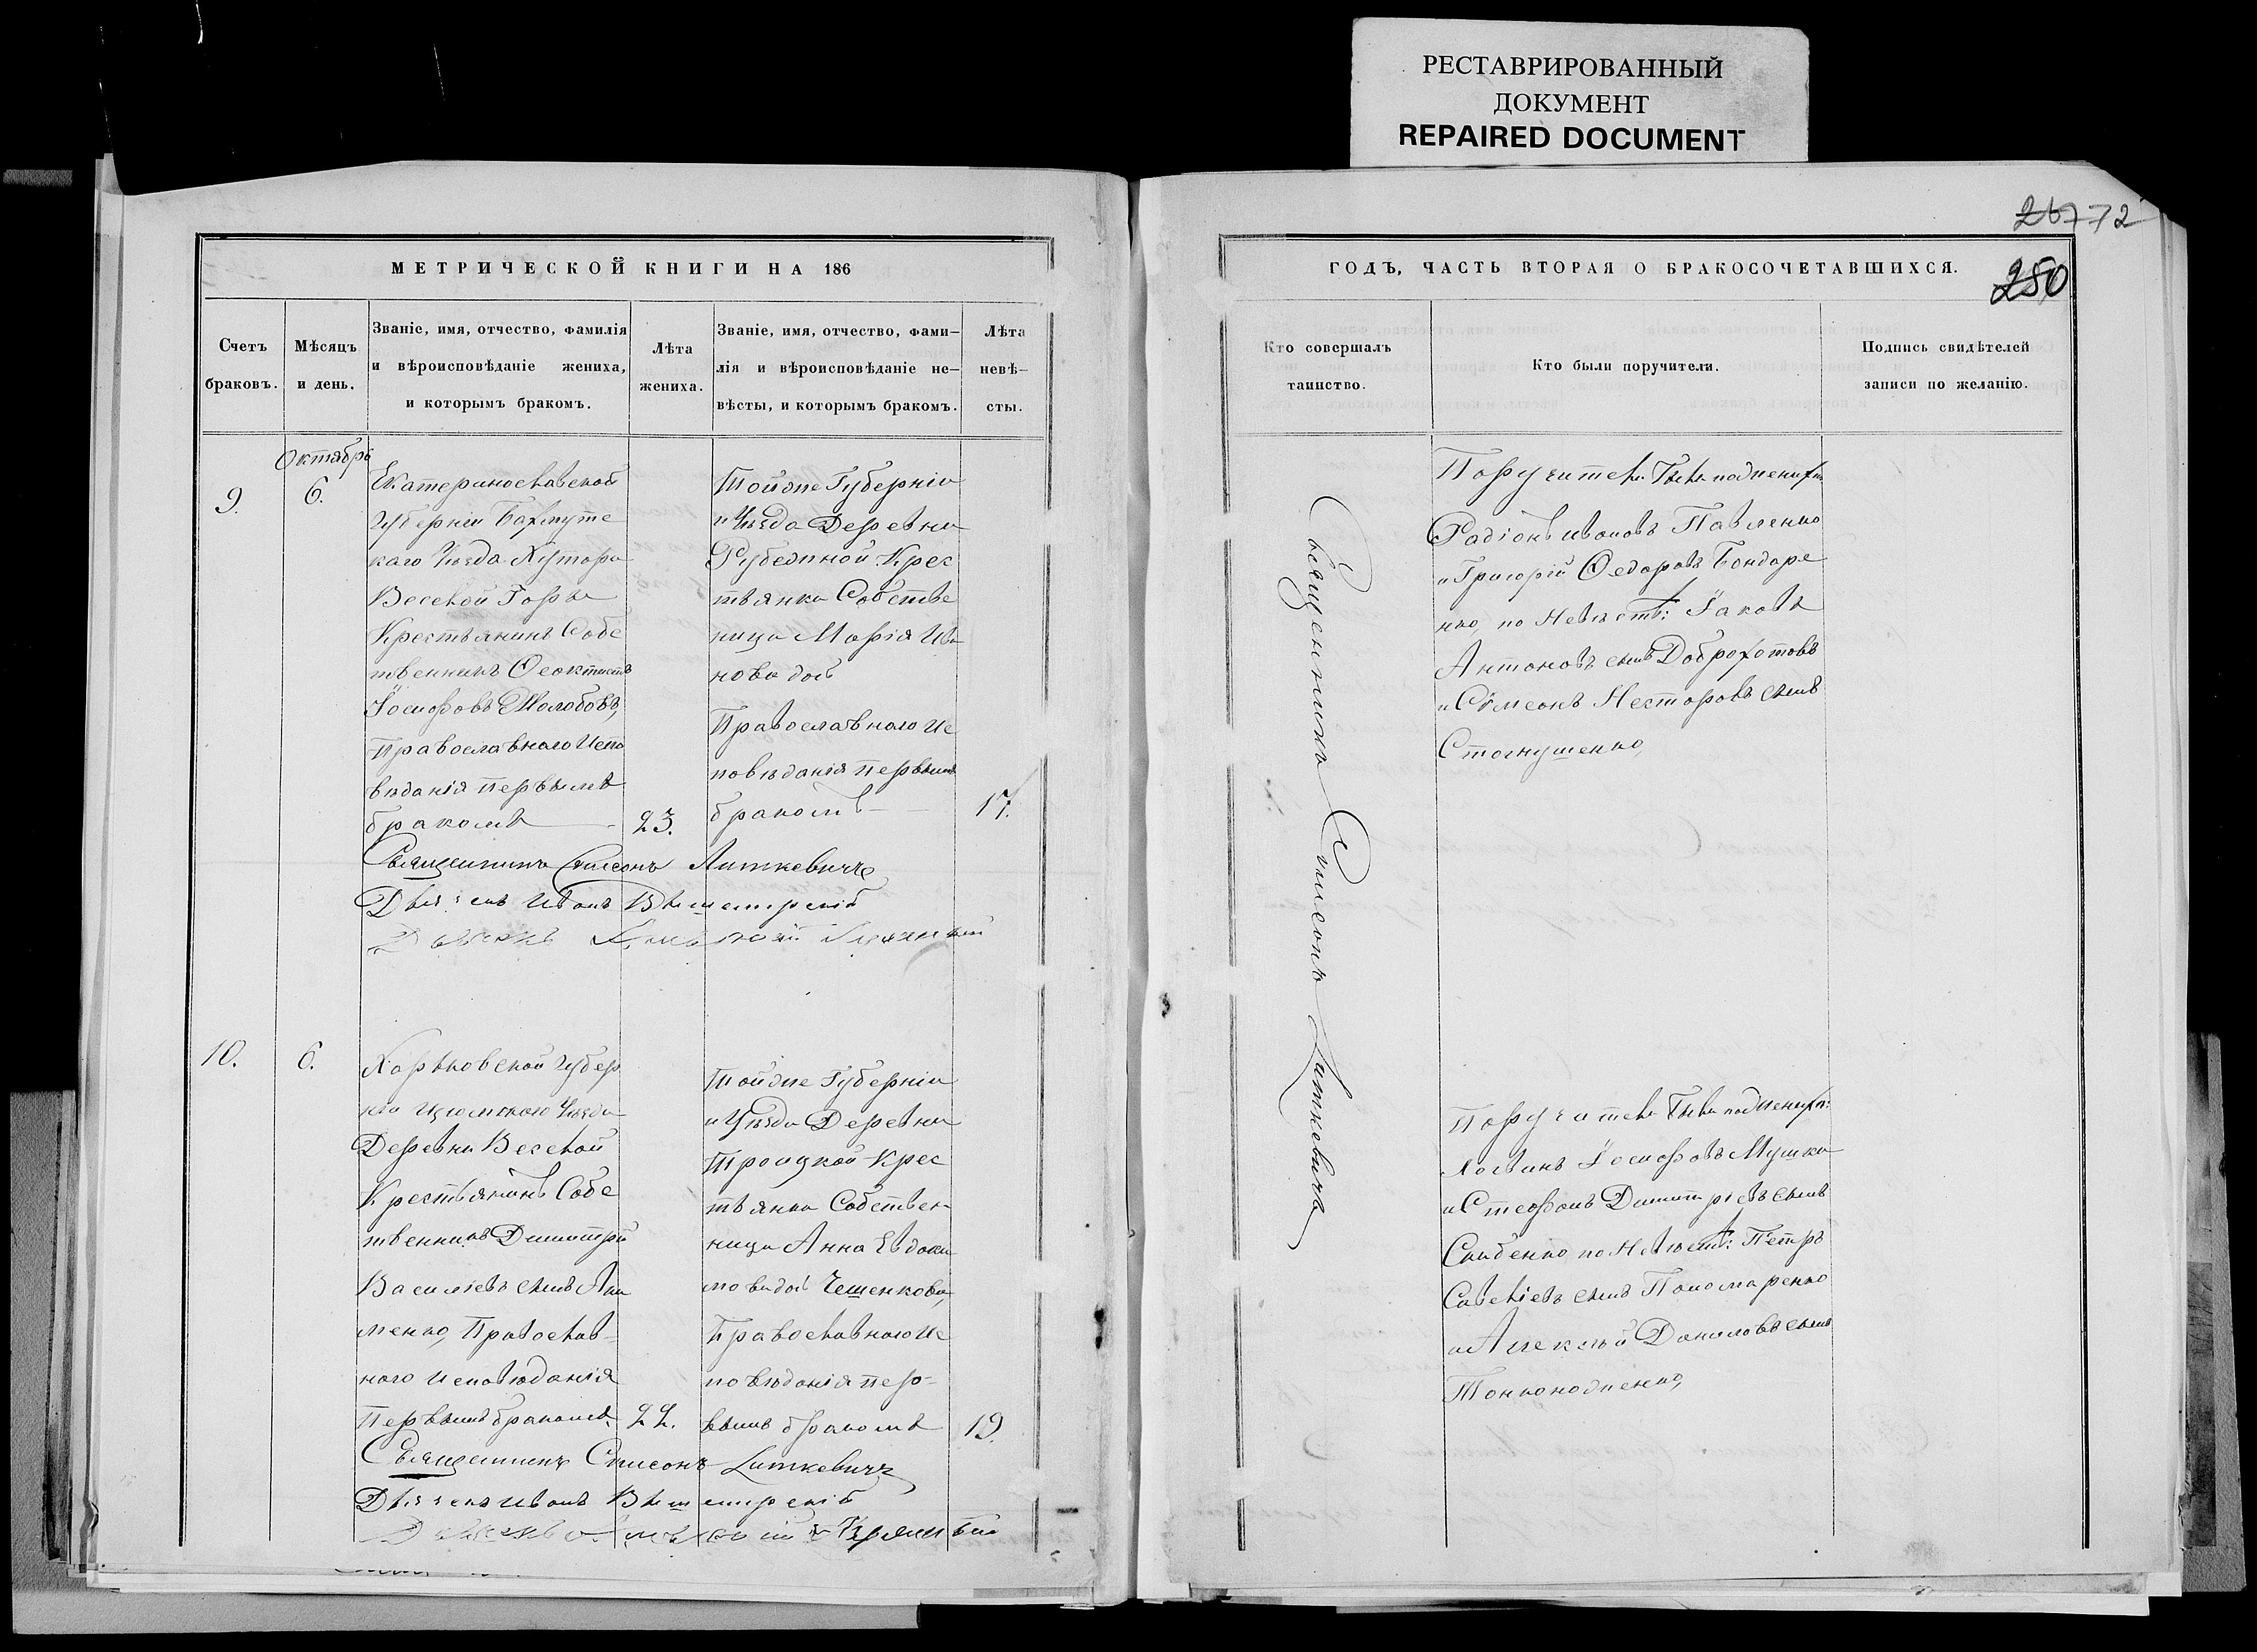 РЕСТАВРИРОВАННЫЙ
ДОКУМЕНТ
REPAIRED DOCUMENT
267 72
250
МЕТРИЧЕСКОЙ КНИГИ НА 186
Счетъ
браковъ.
Мѣсяцъ
и день.
Званіе, имя, отчество, фамилія
и вѣроисповѣданіе жениха,
и которымъ бракомъ.
Лѣта
жениха.
Званіе, имя, отчество, фами-
лія и вѣроисповѣданіе не-
вѣсты, и которымъ бракомъ.
Лѣта
невѣ-
сты.
9.
Октября
6.
Екатеринославской
Губерніи Бахмутс
каго Уѣзда Хутора
Веселой Горы
Крестьянинъ Собс
твенникъ Ѳеоктистъ
Іосифовъ
Православнаго Испо
вѣданія первымъ
бракомъ
23.
Тойже Губерніи
и Уѣзда Деревни
Рубежной Крес
тьянка Собстве
ница Марія Ива
нова дочь
Православнаго Ис
повѣданія первымъ
бракомъ
17.
Священникъ Симеонъ Литкевичъ
Дьячекъ Иванъ
10.
6.
Харьковской Губер
ніи Изюмскаго Уѣзда
Деревни Веселой
Крестьянинъ Собс
твенникъ Димитрій
Василіевъ сынъ Аки
менко, Православ-
наго исповѣданія
Первымъ бракомъ
22.
Тойже Губерніи
и Уѣзда Деревни
Троицкой Крес
тьянка Собствен-
ница Анна Евдоки
мова дочь Чешенкова,
Православнаго Ис
повѣданія пер-
вымъ бракомъ
19.
Священникъ Симеонъ Литкевичъ
Дьячекъ Иванъ
ГОДЪ, ЧАСТЬ ВТОРАЯ О БРАКОСОЧЕТАВШИХСЯ.
Кто совершалъ
таинство.
Кто были поручители.
Подпись свидѣтелей
записи по желанію.
Священникъ Симеонъ Литкевичъ
Поручители были по женихѣ
Радіонъ Ивановъ Павленко
и Григорій Ѳедоровъ Бондаре
нко, по Невѣстѣ: Іаковъ
Антоновъ сынъ Доброхотовъ
и Сѵмеонъ Несторовъ сынъ
Стогнушенко,
Поручители были по женихѣ:
Іосифовъ Мушка
и Стефанъ Димитріевъ сынъ
Скибенко по Невѣстѣ: Петръ
Савеліевъ сынъ Пономаренко
и Алексѣй Даниловъ сынъ
Тонконоженко,